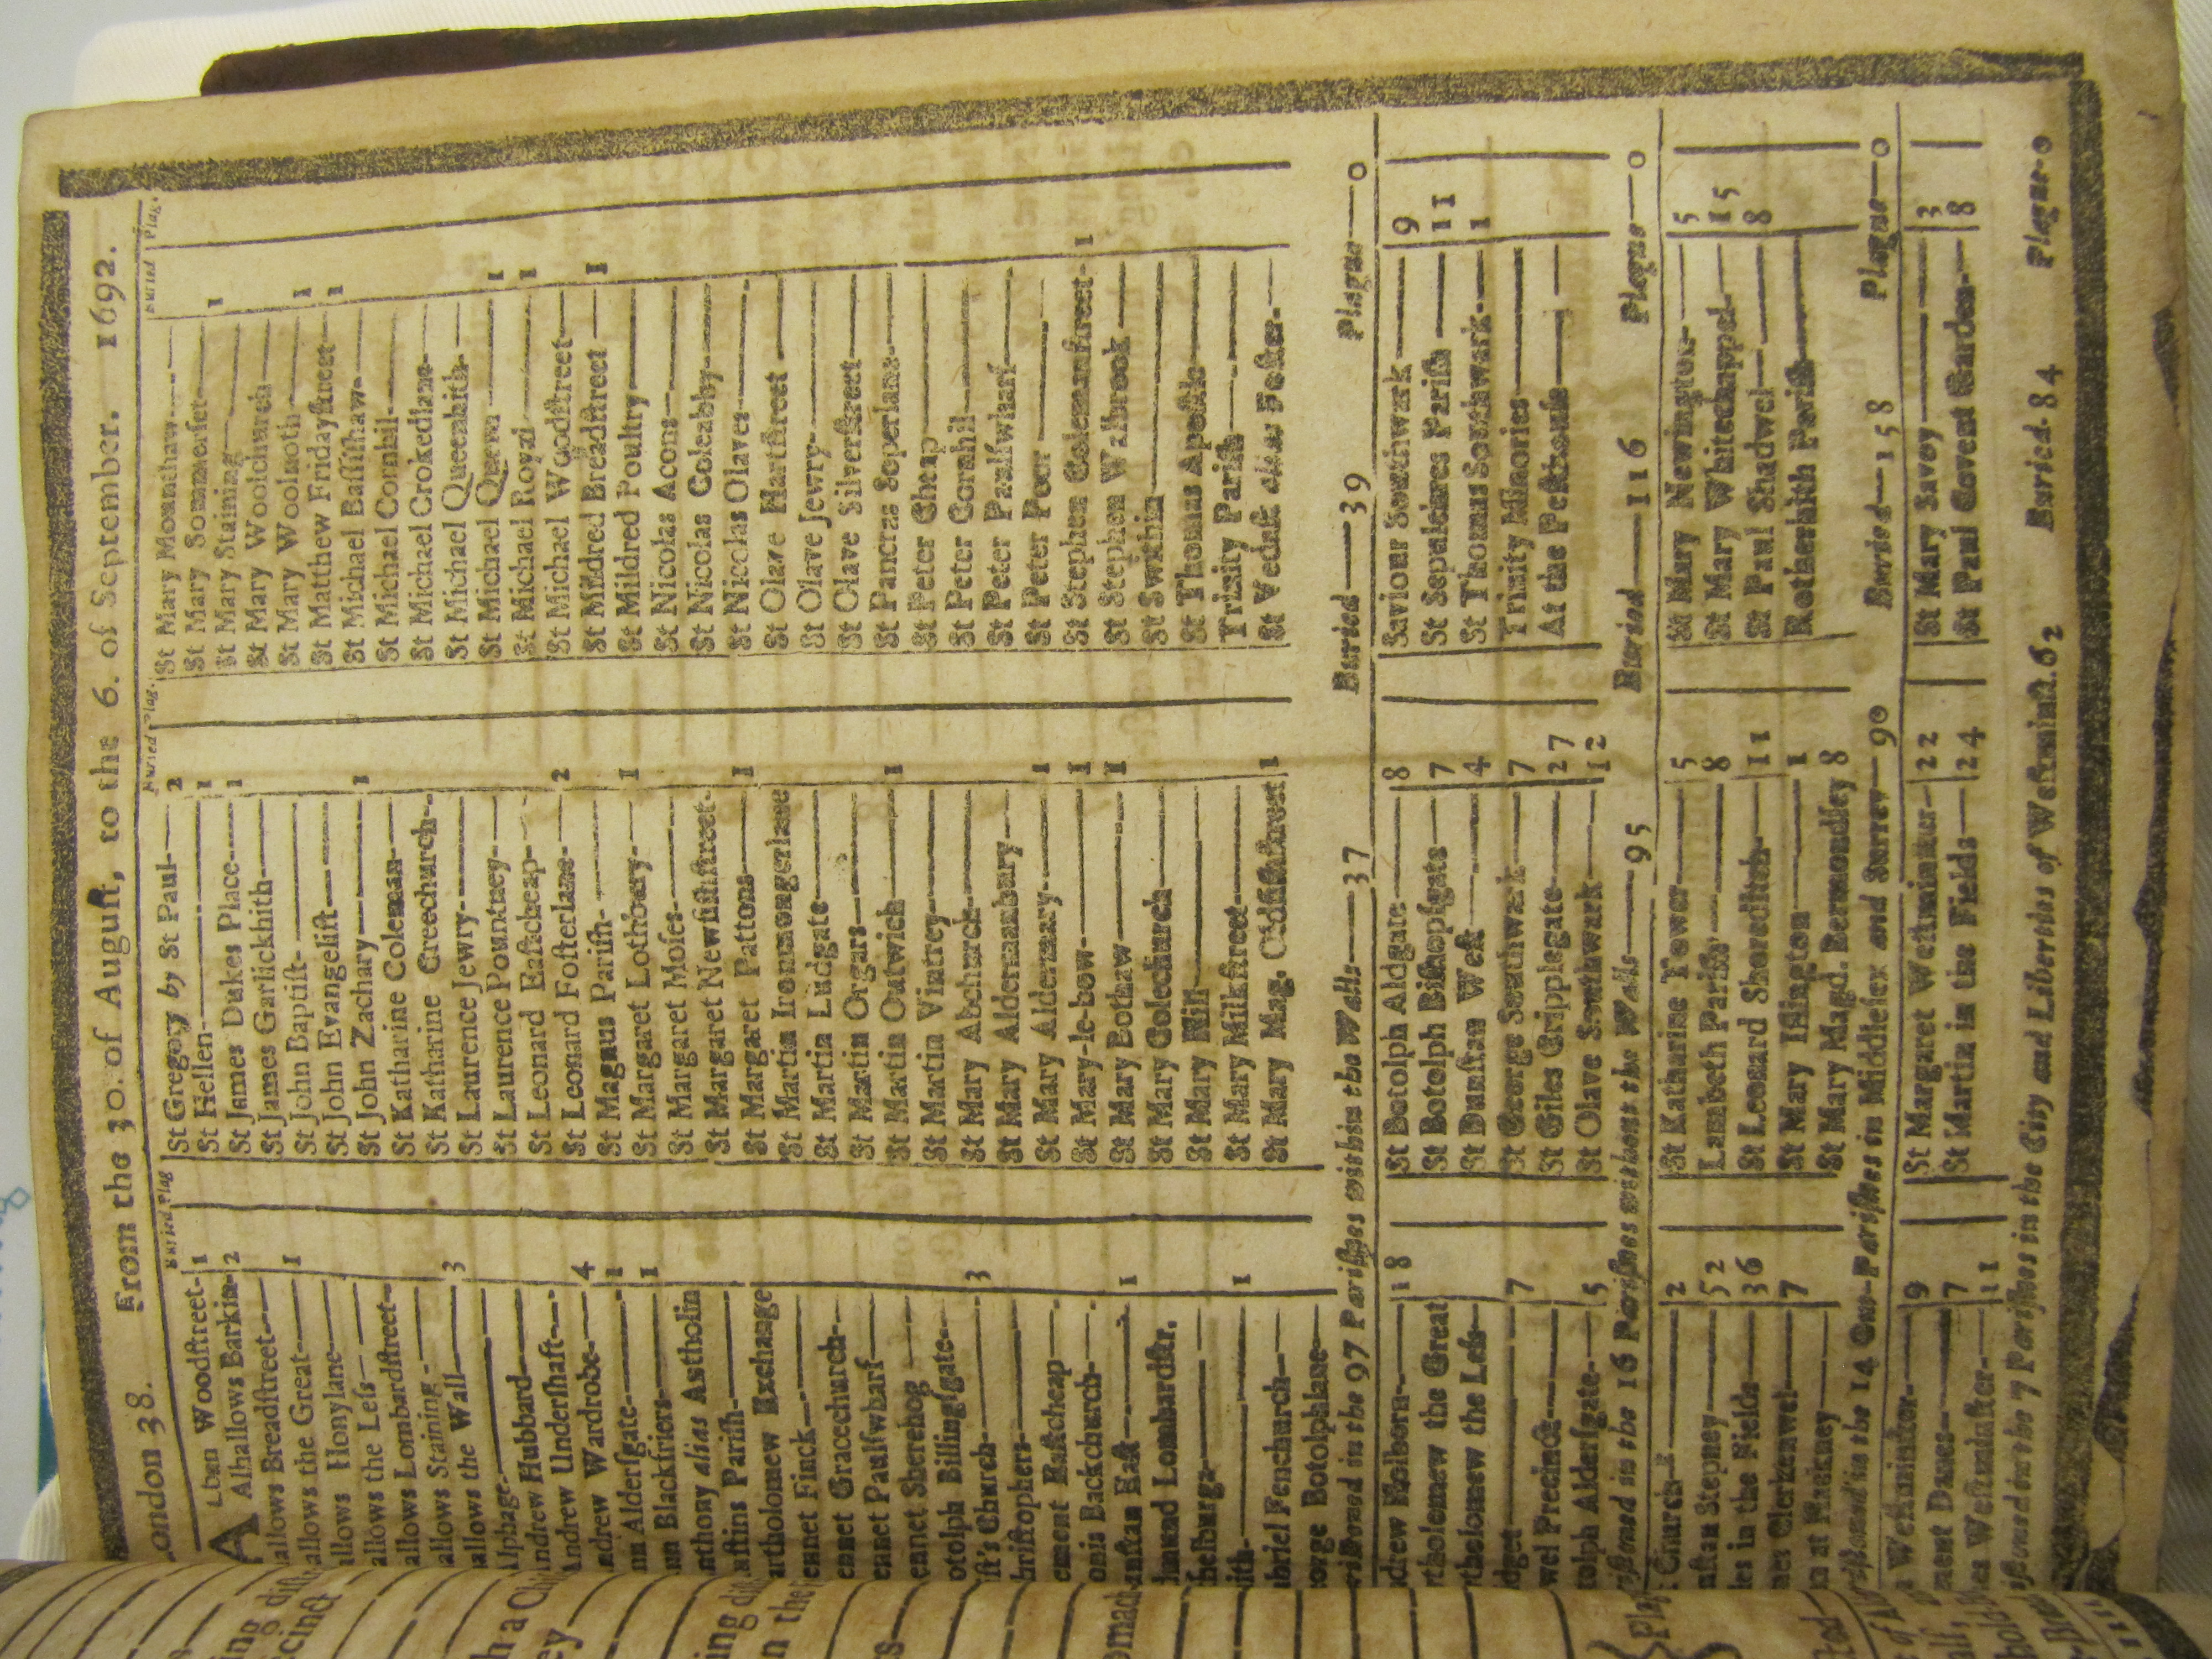 London 38. From the 30. of Auguſt, to the 6. of September. 1692.
Buried Plag
Alban Woodſtreet 1
Alhallows Barkin 2
allows Breadſtreet
allows the Great 1
allows Honylane
allows the Leſs
allows Lombardſtreet
allows Staining
allows the Wall 3
lphage
ndrew Hubbard
ndrew Underſhaft
ndrew Wardrobe 4
nn Alderſgate 1
nn Blackfriers 1
nthony alias Antholin
uſtins Pariſh
artholomew Exchange
ennet Finck
ennet Gracechurch
ennet Paulſwharf
ennet Sherehog
otolph Billingſgate
iſt's Church 3
hriſtophers
ement Eaſtcheap
onis Backchurch
unſtan Eaſt 1
mund Lombardſtr.
helburga
ith 1
briel Fenchurch
eorge Botolphlane
Buried Plag.
St Gregory by St Paul 2
St Hellen 1
St James Dukes Place 1
St James Garlickhith
St John Baptiſt
St John Evangeliſt
St John Zachary 1
St Katharine Coleman
St Katharine Creechurch
St Laurence Jewry
St Laurence Pountney
St Leonard Eaſtcheap
St Leonard Foſterlane 2
St Magnus Pariſh
St Margaret Lothbury 1
St Margaret Moſes
St Margaret Newfiſhſtreet
St Margaret Pattons 1
St Martin Ironmongerlane
St Martin Ludgate
St Martin Orgars
St Martin Outwich 1
St Martin Vintrey
St Mary Abchurch
St Mary Aldermanbury
St Mary Aldermary 1
St Mary-le-bow 1
St Mary Bothaw 1
St Mary Colechurch
St Mary Hill
St Mary Milkſtreet
St Mary Mag. Oldfiſhſtreet 1
Buried Plag.
St Mary Mounthaw
St Mary Sommerſet 1
St Mary Staining
St Mary Woolchurch
St Mary Woolnoth 1
St Matthew Fridayſtreet 1
St Michael Baſſiſhaw
St Michael Cornhil
St Michael Crokedlane
St Michael Queenhith
St Michael Quern 1
St Michael Royal 1
St Michael Woodſtreet
St Mildred Breadſtreet 1
St Mildred Poultry
St Nicolas Acons
St Nicolas Coleabby
St Nicolas Olaves
St Olave Hartſtreet
St Olave Jewry
St Olave Silverſtreet
St Pancras Soperlane
St Peter Cheap
St Peter Cornhil
St Peter Paulſwharf
St Peter Poor
St Stephen Colemanſtreet 1
St Stephen Walbrook
St Swithin
St Thomas Apoſtle
Trinity Pariſh
St Vedaſt alias Foſter
riſtned in the 97 Pariſhes within the Walls 37 Buried 39 Plague 0
drew Holborn 18
rtholomew the Great
rtholomew the Leſs
dget 7
wel Precinct
tolph Alderſgate 5
St Botolph Aldgate 8
St Botolph Biſhopſgate 7
St Dunſtan Weſt 4
St George Southwark 7
St Giles Cripplegate 27
St Olave Southwark 12
Saviour Southwark 9
St Sepulchres Pariſh 11
St Thomas Southwark 1
Trinity Minories
At the Peſthouſe
riſtned in the 16 Pariſhes without the Walls 95 Buried 116 Plague 0
Church 2
unſtan Stepney 52
les in the Fields 36
mes Clerkenwel 7
n at Hackney
St Katharine Tower 5
Lambeth Pariſh 8
St Leonard Shoreditch 11
St Mary Iſlington 1
St Mary Magd. Bermondſey 8
St Mary Newington 5
St Mary Whitechappel 15
St Paul Shadwel 8
Rotherhith Pariſh
riſtned in the 14 Out-Pariſhes in Middleſex and Surrey 90 Buried 158 Plague 0
Weſtminſter 9
ment Danes 7
es Weſtminſter 11
St Margaret Weſtminſter 22
St Martin in the Fields 24
St Mary Savoy 3
St Paul Covent Garden 8
riſtned in the 7 Pariſhes in the City and Liberties of Weſtminſt. 62 Buried 84 Plague 0